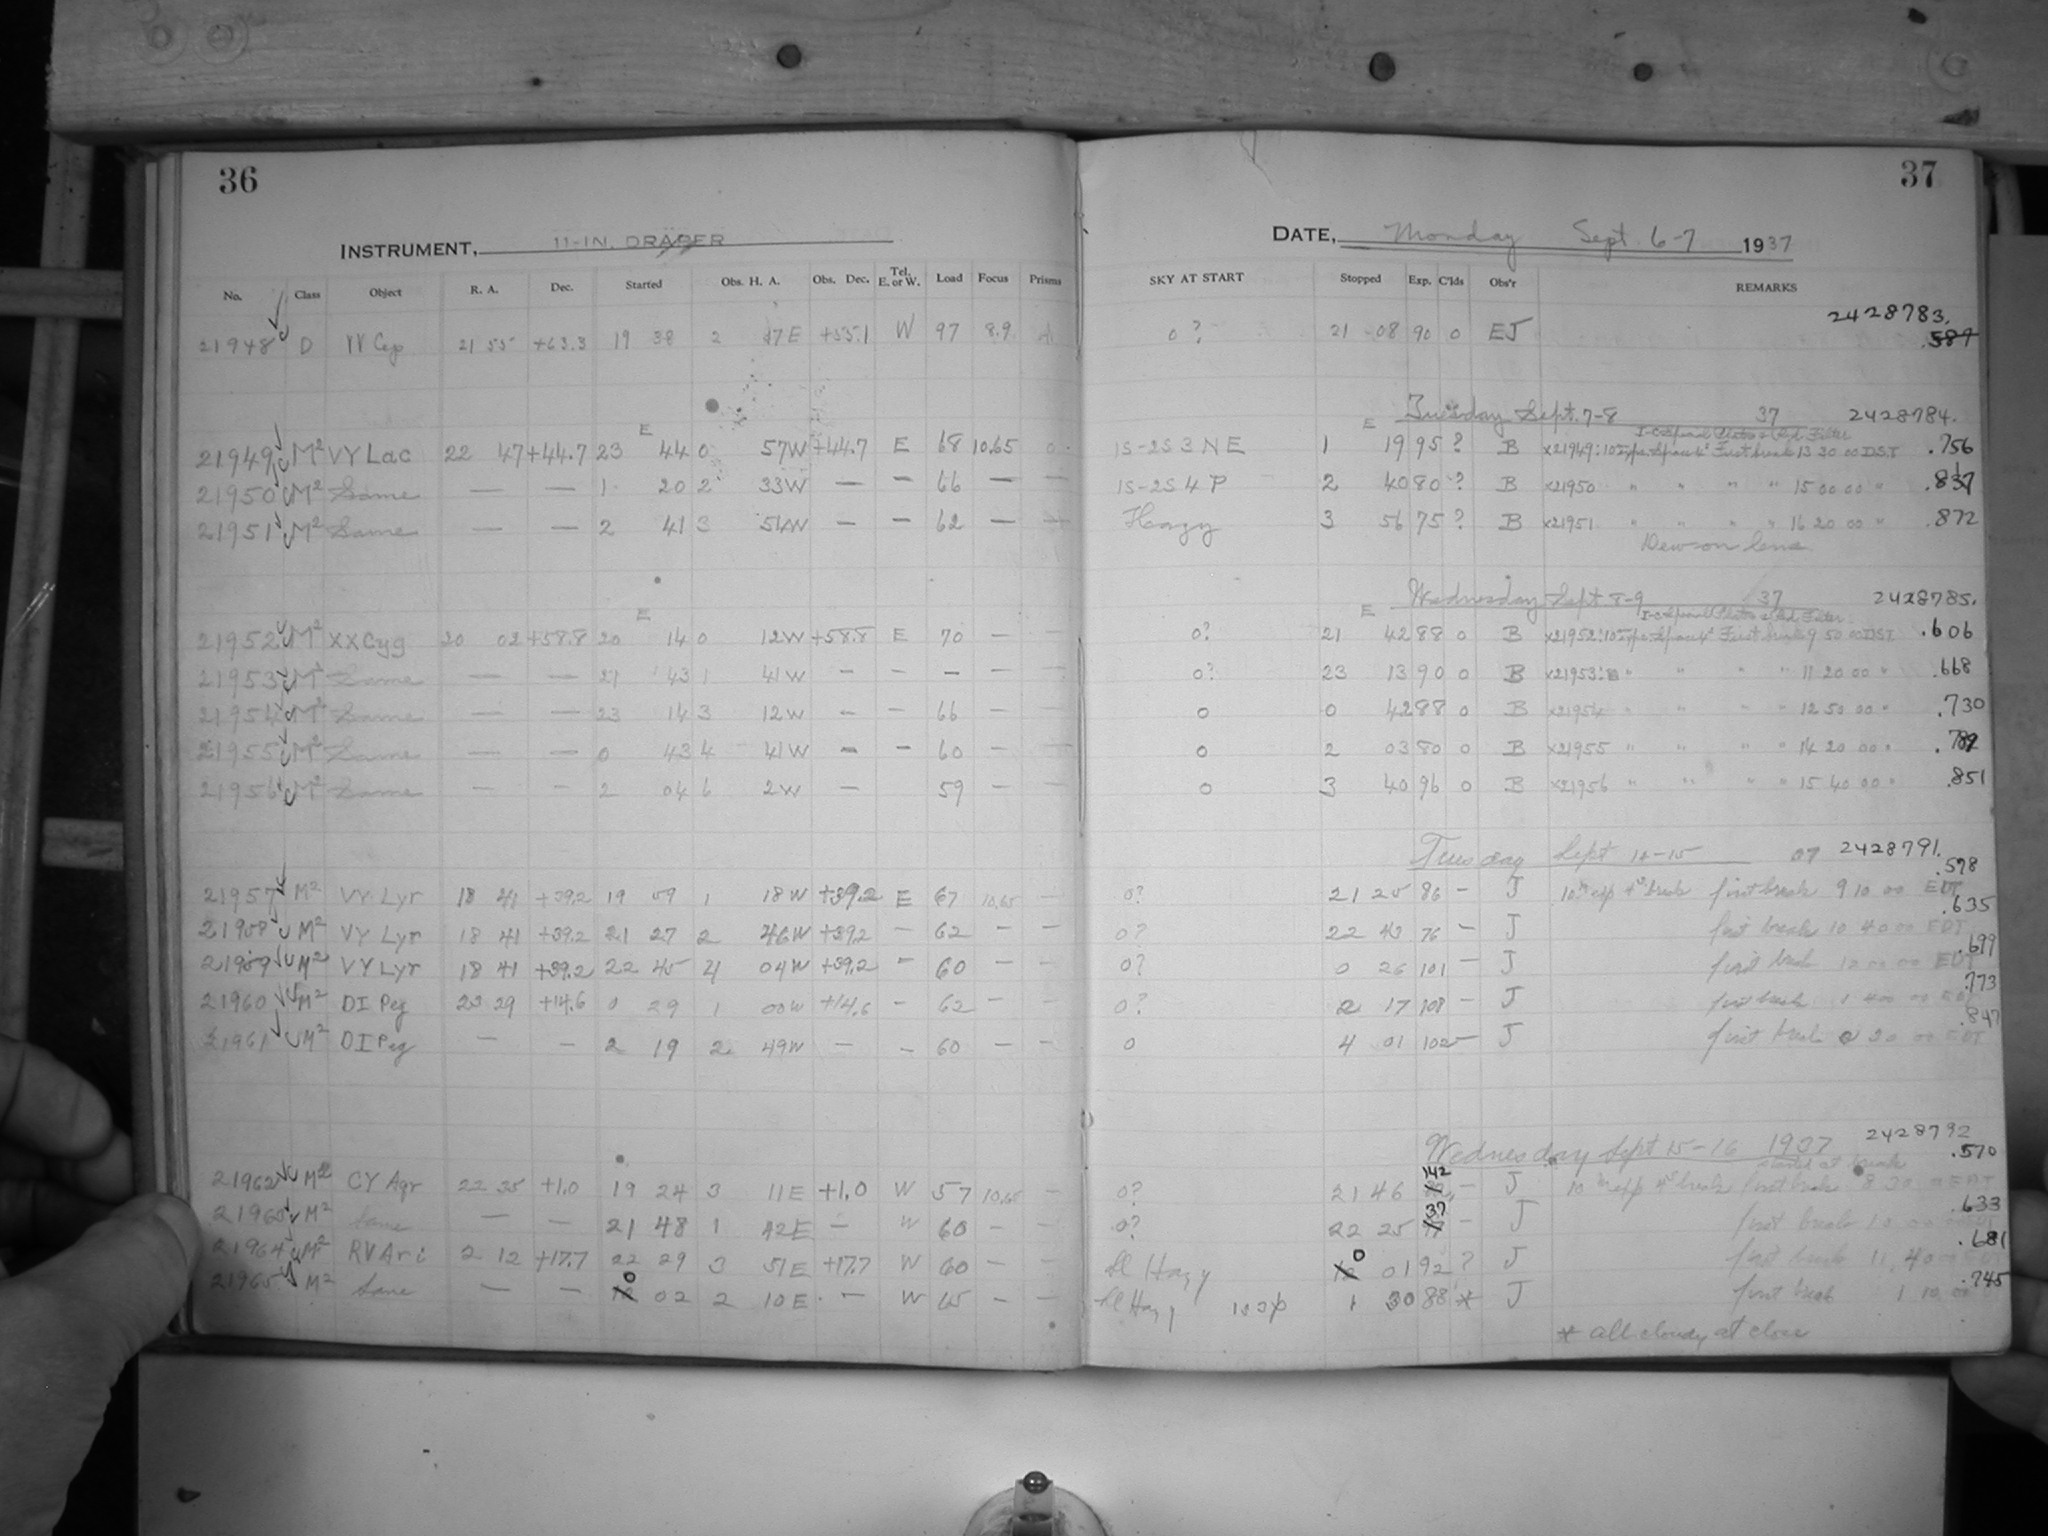 36
37
INSTRUMENT, 11-IN. DRAPER
DATE, Monday Sept. 6-7 1937
No. Class Object R. A. Dec. Started Obs. H. A. Obs. Dec. Tel. E. or W. Load Focus Prisms SKY AT START Stopped Exp. C'lds Obs'r REMARKS
2428783.
21948 D VV Cep 21 55 +63.3 19 38 2 47E +55.1 W 97 8.9 0? 21 08 90 0 EJ .587
Tuesday Sept. 7-8 37 2428784.
E E I-C Special Plates & Red Filter
21949 M2 VY Lac 22 47 +44.7 23 44 0 57W +44.7 E 68 10.65 0 1S-2S 3 NE 1 19 95 ? B x21949: First break 13 30 00 DST .756
21950 M2 Same — — 1 20 2 33W — — 66 — — 1S-2S 4 P 2 40 80 ? B x21950 " " " " 15 00 00 " .837
21951 M2 Same — — 2 41 3 54W — — 62 — — Hazy 3 56 75 ? B x21951 " " " " 16 20 00 " .872
Dew on lens
Wednesday Sept 8-9 37 2428785.
E E I-C Special Plates & Red Filter
21952 M2 XX Cyg 20 02 +58.8 20 14 0 12W +58.8 E 70 — — 0? 21 42 88 0 B x21952: First break 9 50 00 DST .606
21953 M2 Same — — 21 43 1 41W — — — — — 0? 23 13 90 0 B x21953: " " " " 11 20 00 " .668
21954 M2 Same — — 23 14 3 12W — — 66 — — 0 0 42 88 0 B x21954 " " " " 12 50 00 " .730
21955 M2 Same — — 0 43 4 41W — — 60 — — 0 2 03 80 0 B x21955 " " " " 14 20 00 " .789
21956 M2 Same — — 2 04 6 2W — 59 — — 0 3 40 96 0 B x21956 " " " " 15 40 00 " .851
Tuesday Sept 14-15 37 2428791.
21957 M2 VY Lyr 18 41 +39.2 19 59 1 18W +39.2 E 67 10.65 — 0? 21 25 86 — J 10m exp 4s break first break 9 10 00 EDT .578
21958 M2 VY Lyr 18 41 +39.2 21 27 2 46W +39.2 — 62 — — 0? 22 43 76 — J first break 10 40 00 EDT .635
21959 M2 VY Lyr 18 41 +39.2 22 45 4 04W +39.2 — 60 — — 0? 0 26 101 — J first break 12 00 00 EDT .699
21960 M2 DI Peg 23 29 +14.6 0 29 1 00W +14.6 — 62 — — 0? 2 17 108 — J first break 1 40 00 EDT .773
21961 M2 DI Peg — — 2 19 2 49W — — 60 — — 0 4 01 102 — J first break 2 30 00 EDT .847
Wednesday Sept 15-16 1937 2428792
21962 M2 CY Aqr 22 35 +1.0 19 24 3 11E +1.0 W 57 10.65 — 0? 21 46 142 — J 10m exp 4s break first break 8 30 00 EDT .570
21963 M2 Same — — 21 48 1 42E — W 60 — — 0? 22 25 37 — J first break .633
21964 M2 RV Ari 2 12 +17.7 22 29 3 51E +17.7 W 60 — — sl Hazy 0 01 92 ? J first break 11 40 00 .681
21965 M2 Same — — 0 02 2 10E — W 65 — — sl Hazy 1 30 88 * J first break 1 10 00 .745
* all cloudy at close